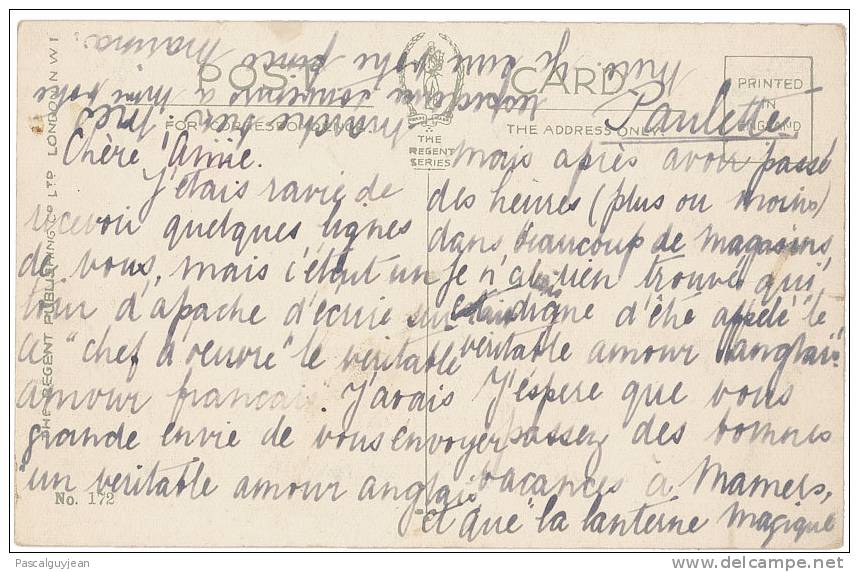 POST CARD
FOR CORRESPONDENCE
THE ADDRESS ONLY
THE
REGENT
SERIES
PRINTED
IN
ENGLAND
THE REGENT PUBLISHING Co LTD LONDON N W 1
No. 172
Chère Amie.
J'étais ravie de
recevoir quelques lignes
de vous, mais c'était un
tour d'apache d'écrire sur
ce "chef d'oeuvre" le véritable
amour français. J'avais
grande envie de vous envoyer
"un véritable amour anglais"
mais après avoir passé
des heures (plus ou moins)
dans beaucoup de magasins
je n'ai rien trouvé qui
était digne d'été appelé "le
véritable amour anglais".
J'espère que vous
passez des bonnes
vacances à Mamers,
et que "la lanterne magique
marche bien.
Paulette
Pascalguyjean
delcampe.net